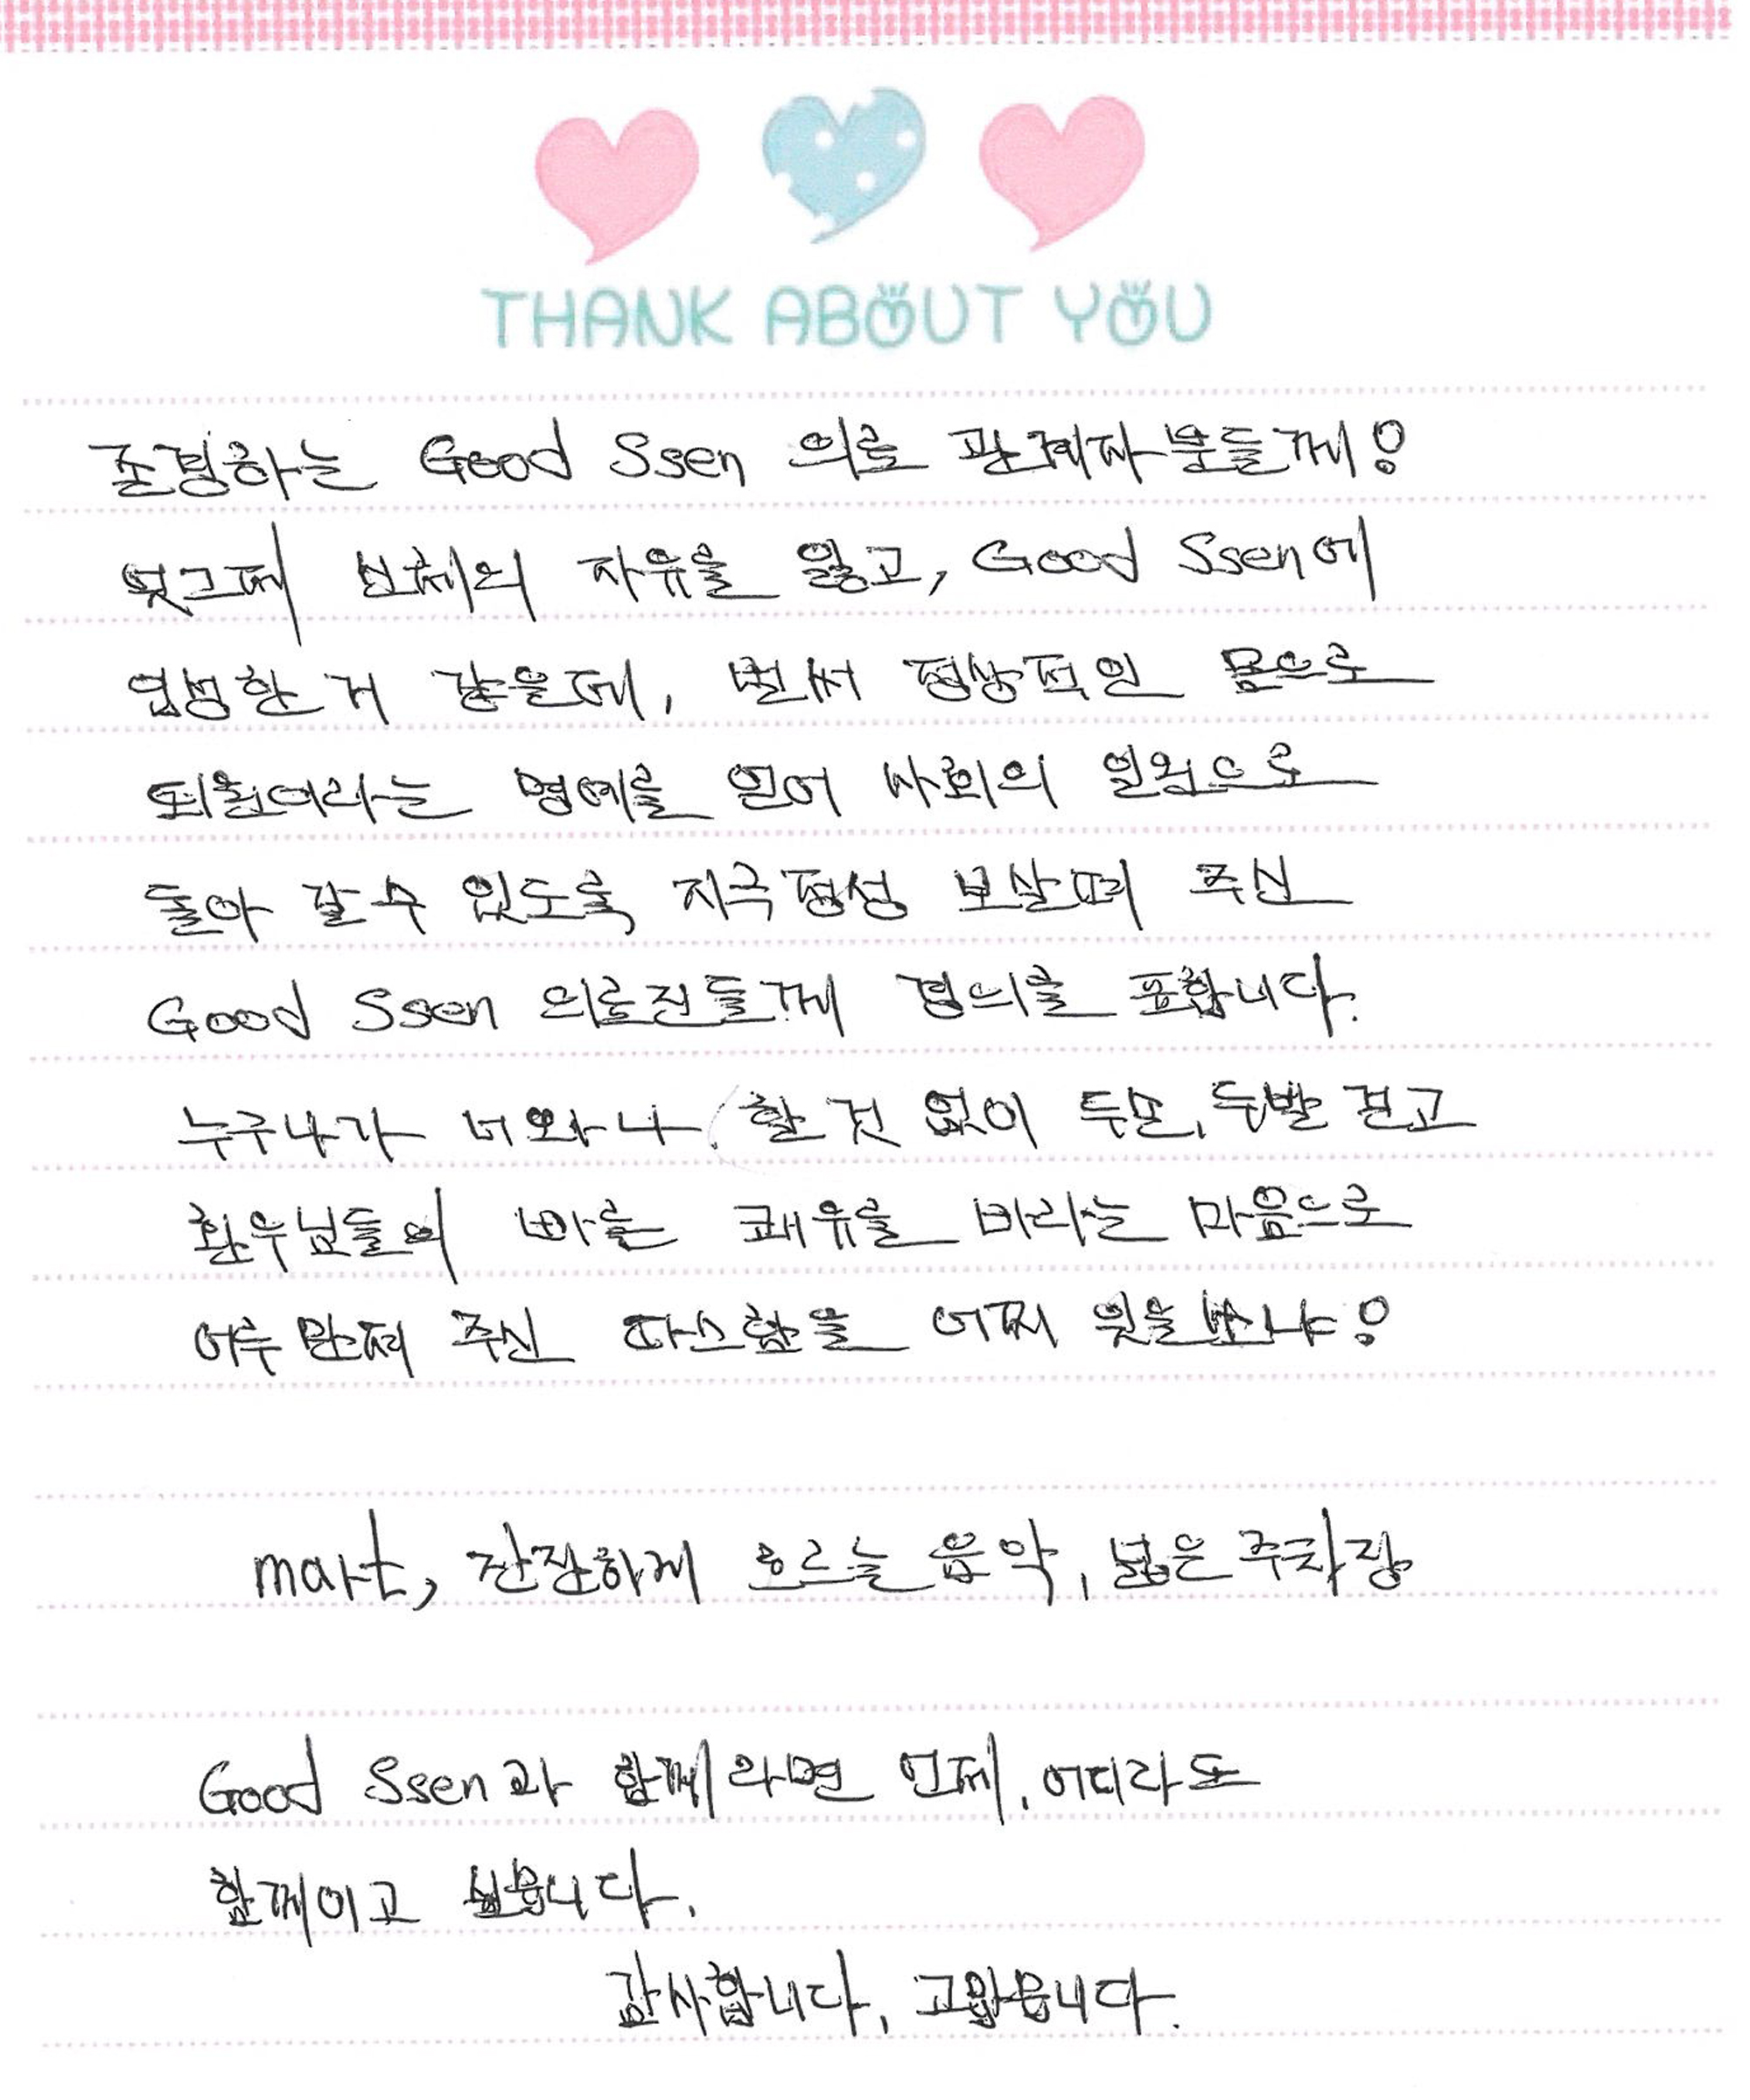 THANK ABOUT YOU
존경하는 Good Ssen 의료 관계자분들께!
엊그제 신체의 자유를 잃고, Good Ssen에
입성한 거 같은데, 벌써 정상적인 몸으로
퇴원이라는 명예를 얻어 사회의 일원으로
돌아 갈 수 있도록 지극정성 보살펴 주신
Good Ssen 의료진들께 경의를 표합니다.
누구나가 너와 나 할 것 없이 두손, 두발 걷고
환우님들의 빠른 쾌유를 바라는 마음으로
어루만져 주신 따스함을 어찌 잊을쏘냐!
mart, 잔잔하게 흐르는 음악, 넓은 주차장
Good Ssen과 함께라면 언제, 어디라도
함께이고 싶습니다.
감사합니다, 고맙습니다.